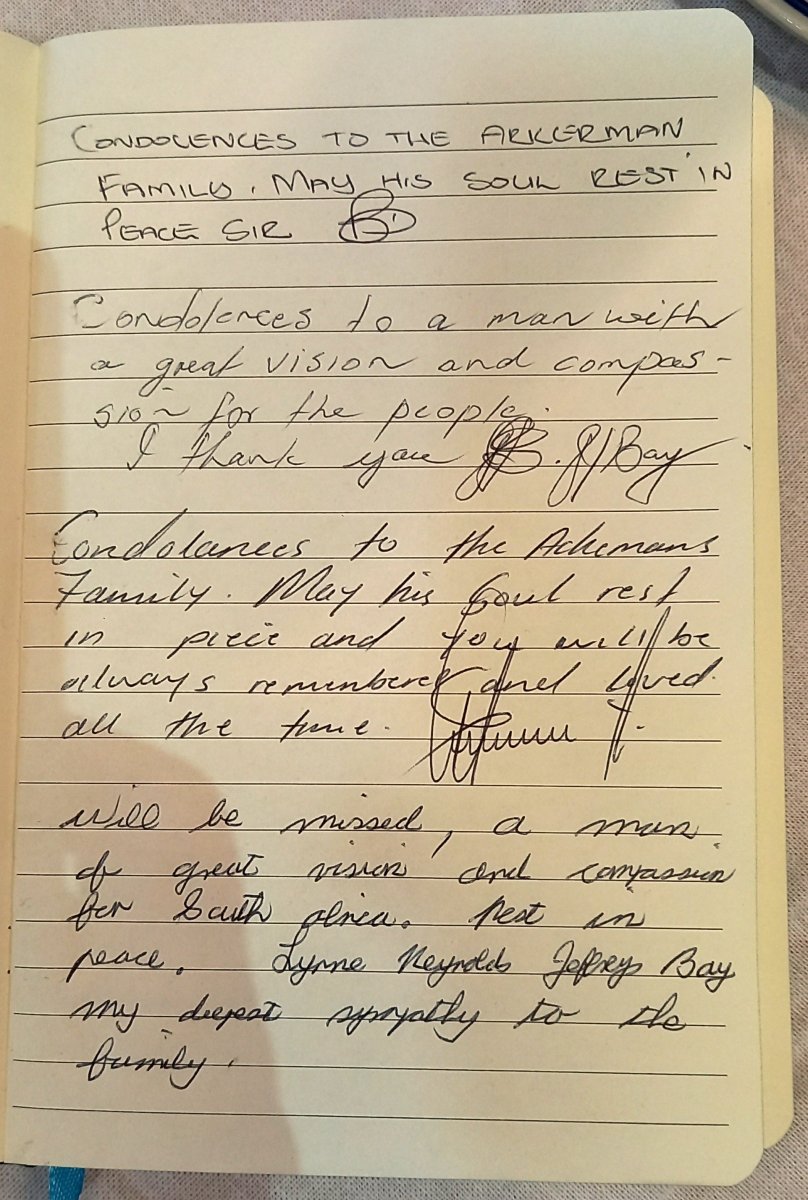 CONDOLENCES TO THE ARKERMAN
FAMILY. MAY HIS SOUL REST IN
PEACE SIR
Condolences to a man with
a great vision and compas-
sion for the people.
I thank you J/Bay
Condolances to the Ackemans
Family. May his Soul rest
in piece and you will be
always remembered and loved
all the time.
will be missed, a man
of great vision and compassion
for South Africa. Rest in
peace. Lynne Reynolds Jeffreys Bay
my deepest sympathy to the
family.